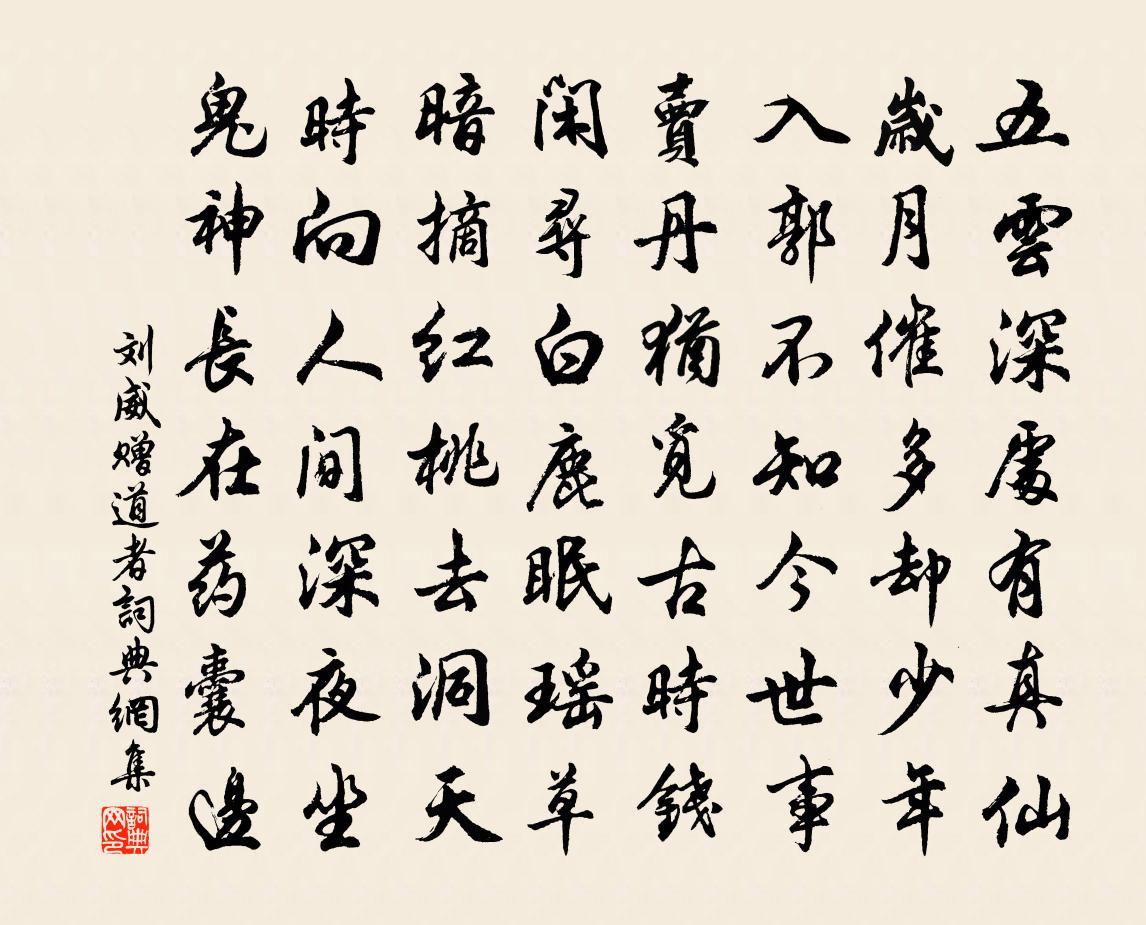 五雲深處有真仙
歲月催多却少年
入郭不知今世事
賣丹猶覓古時錢
閑尋白鹿眠瑶草
暗摘红桃去洞天
時向人间深夜坐
鬼神長在药囊邊
刘威赠道者詞典網集
詞典网印